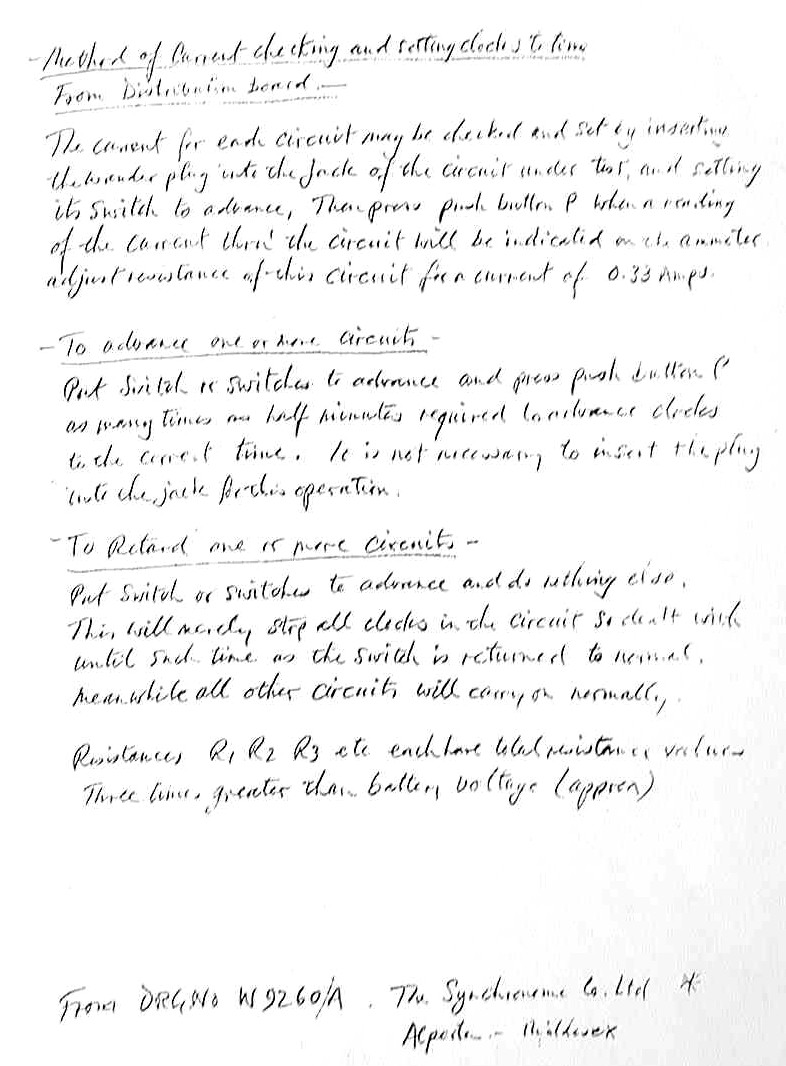 - Method of Current checking and setting clocks to time
From Distribution board. -
The current for each circuit may be checked and set by inserting
the wander plug into the Jack of the circuit under test, and setting
its switch to advance, Then press push button P when a reading
of the current thro' the circuit will be indicated on the ammeter
adjust resistance of this circuit for a current of 0.33 Amps.
- To advance one or more circuits -
Put switch or switches to advance and press push button P
as many times as half minutes required to advance clocks
to the correct time. It is not necessary to insert the plug
into the jack for this operation.
- To Retard one or more circuits -
Put switch or switches to advance and do nothing else.
This will merely stop all clocks in the circuit so dealt with
until such time as the switch is returned to normal.
Meanwhile all other circuits will carry on normally.
Resistances R1 R2 R3 etc each have total resistance values
Three times greater than battery voltage (approx)
From DRG. No W9260/A. The Synchronome Co. Ltd *
Alperton - Middlesex